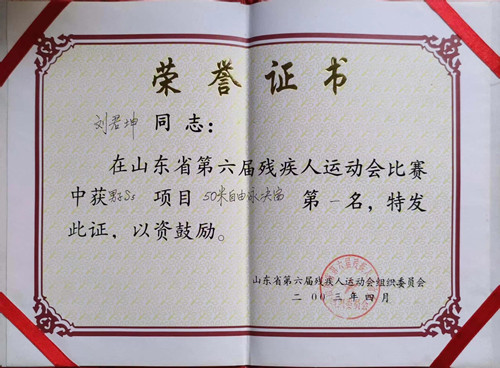 荣誉证书
刘君坤 同志：
在山东省第六届残疾人运动会比赛
中获男子S5 项目 50米自由泳决赛 第一名，特发
此证，以资鼓励。
山东省第六届残疾人运动会组织委员会
二〇〇三年四月